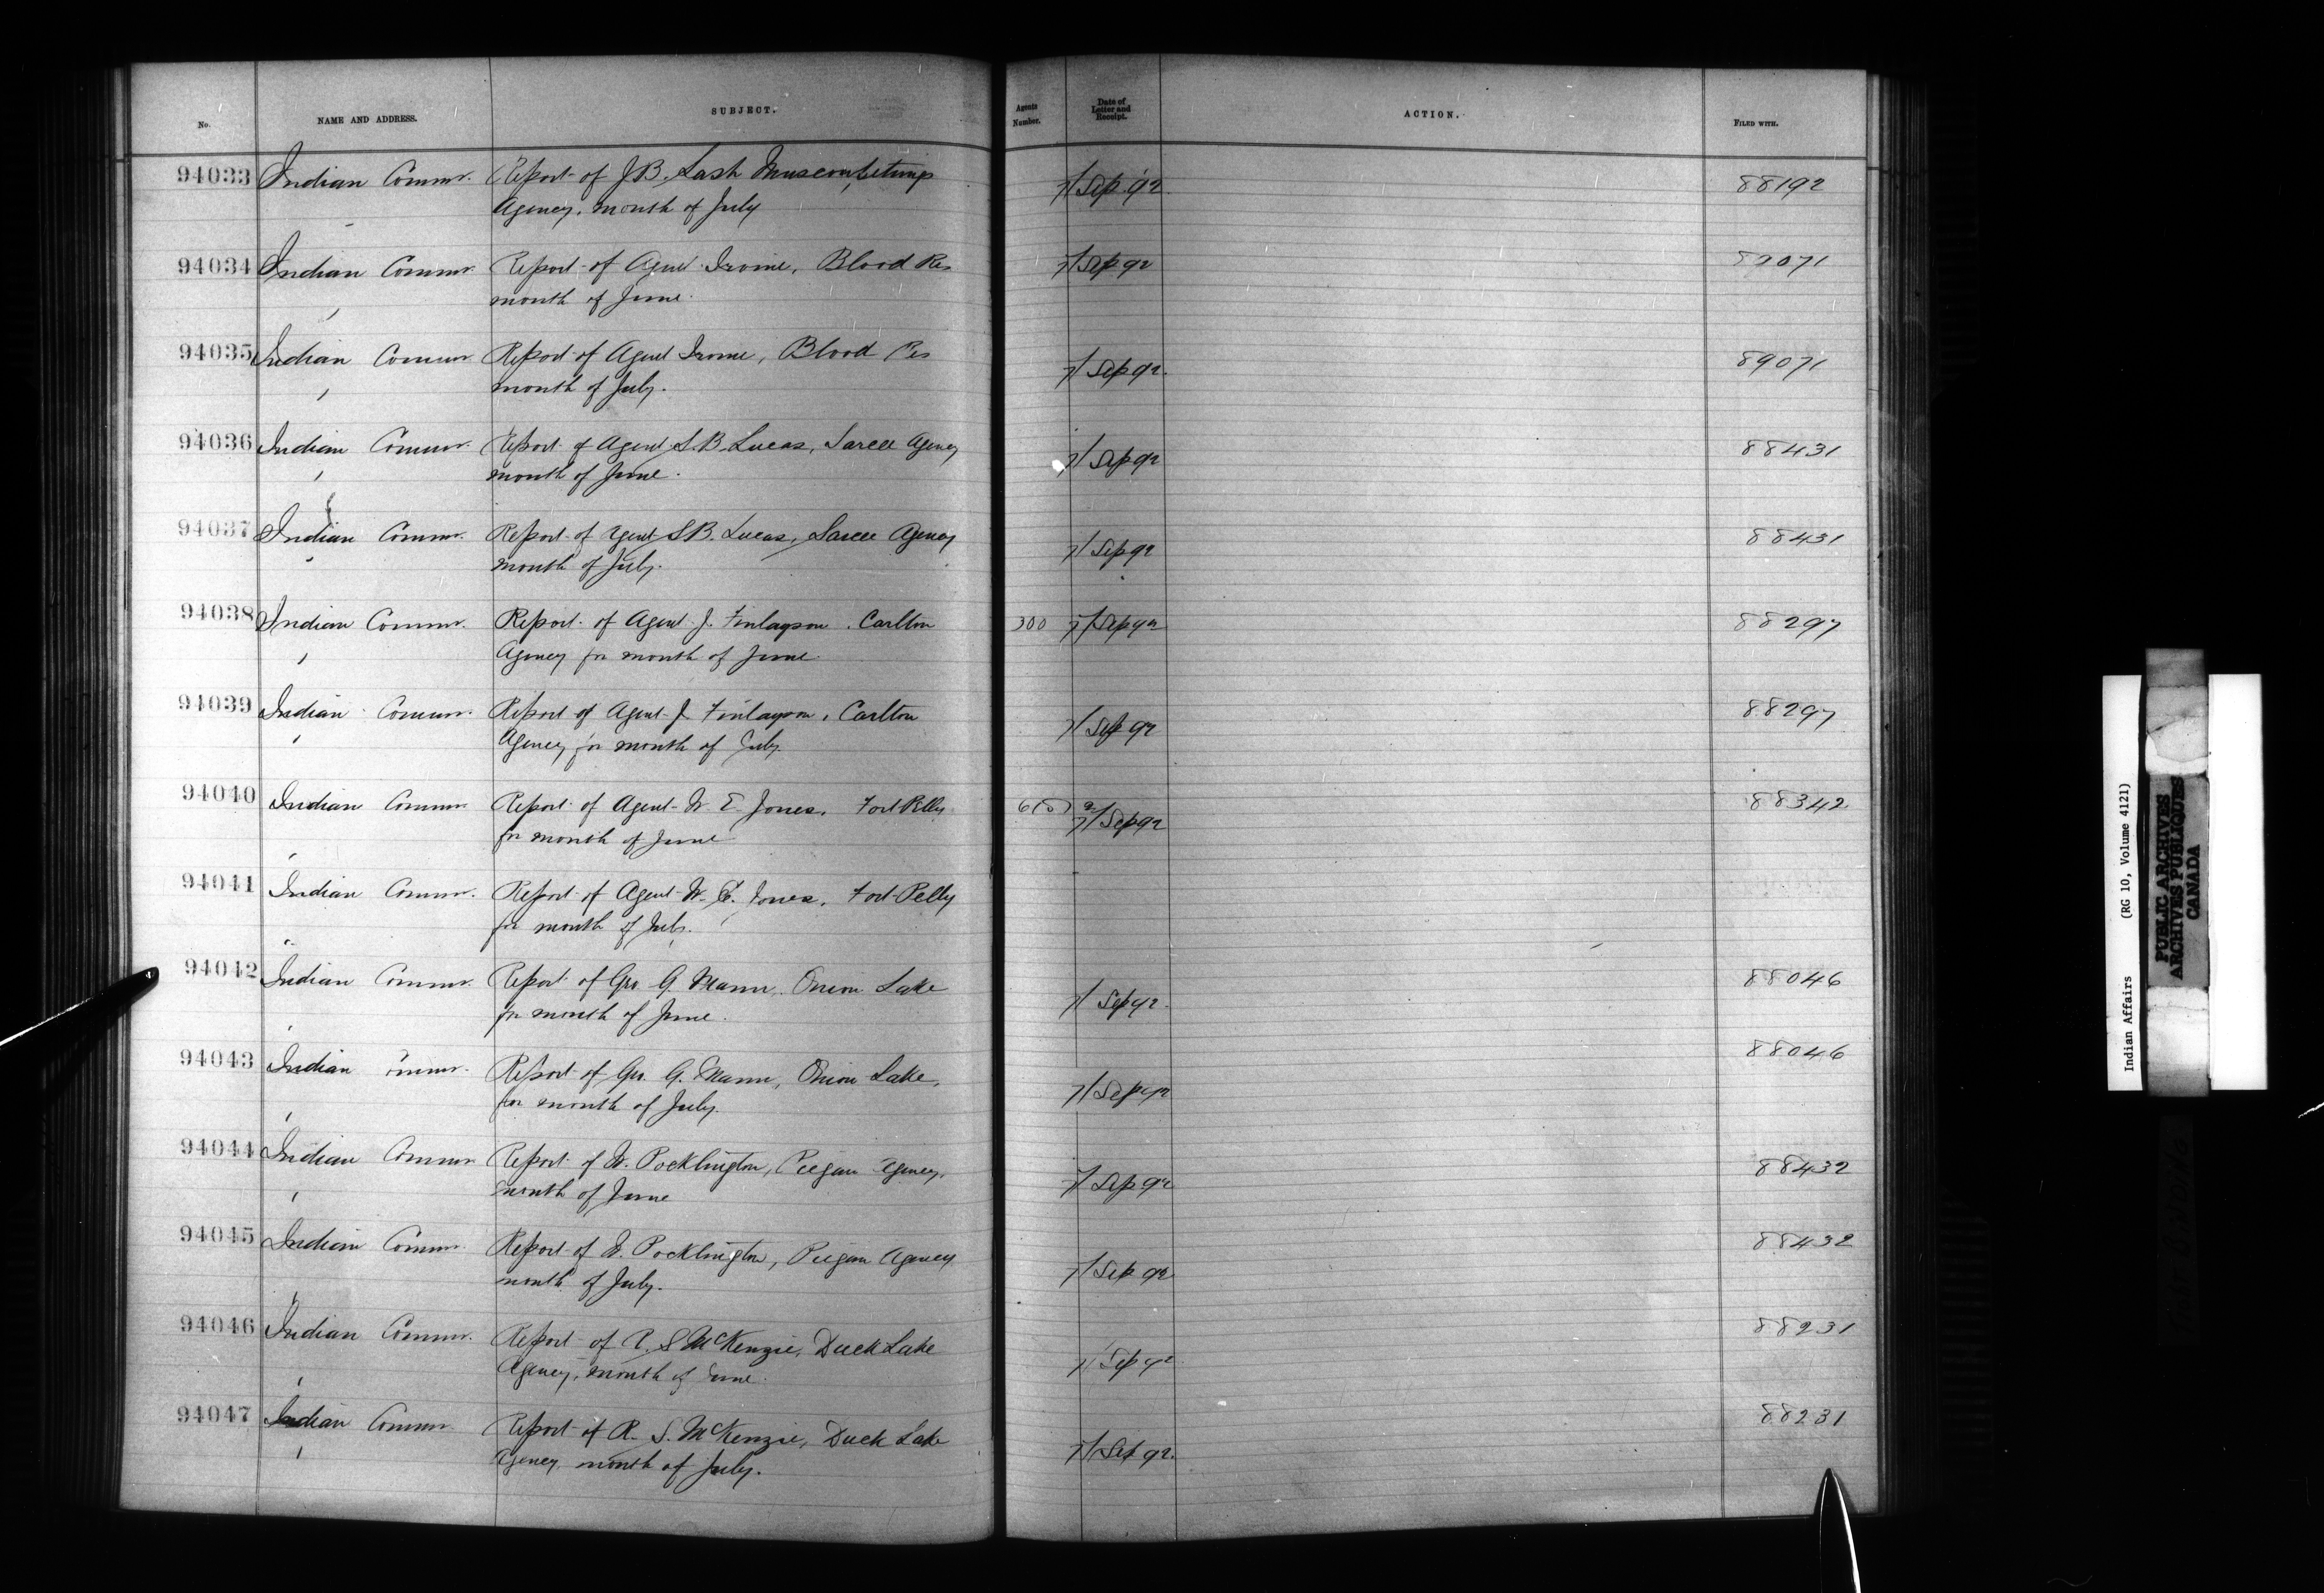 No. NAME AND ADDRESS. SUBJECT. Agents Number. Date of Letter and Receipt. ACTION. FILED WITH.
94033 Indian Commr. Report of J.B. Lash Muscowpetungs 7/ Sep 92. 88192
Agency, month of July
94034 Indian Commr. Report of Agent Irvine, Blood Res 7/ Sep 92 89071
month of June.
94035 Indian Commr Report of Agent Irvine, Blood Res 7/ Sep 92. 89071
month of July.
94036 Indian Commr. Report of Agent S.B. Lucas, Sarcee Agency 7/ Sep 92 88431
month of June.
94037 Indian Commr. Report of Agent S.B. Lucas, Sarcee Agency 7/ Sep 92 88431
month of July.
94038 Indian Commr. Report of Agent J. Finlayson. Carlton 300 7/ Sep 92 88297
Agency for month of June.
94039 Indian Commr. Report of Agent J Finlayson, Carlton 7/ Sep 92 88297
Agency for month of July.
94040 Indian Commr Report of Agent W E Jones, Fort Pelly 7/ Sep 92 88342
for month of June
94041 Indian Commr. Report of Agent W. E. Jones, Fort Pelly
for month of July.
94042 Indian Commr. Report of Geo. G. Mann, Onion Lake 7/ Sep 92. 88046
for month of June.
94043 Indian Commr. Report of Geo. G. Mann, Onion Lake, 7/ Sep 92 88046
for month of July.
94044 Indian Commr Report of W. Pocklington, Piegan Agency, 7/ Sep 92 88432
month of June
94045 Indian Commr. Report of W. Pocklington, Piegan Agency 7/ Sep 92 88432
month of July.
94046 Indian Commr. Report of R. S McKenzie, Duck Lake 7/ Sep 92 88231
Agency, month of June.
94047 Indian Commr Report of R. S. McKenzie, Duck Lake 7/ Sep 92. 88231
Agency, month of July.
Indian Affairs (RG 10, Volume 4121)
PUBLIC ARCHIVES
ARCHIVES PUBLIQUES
CANADA